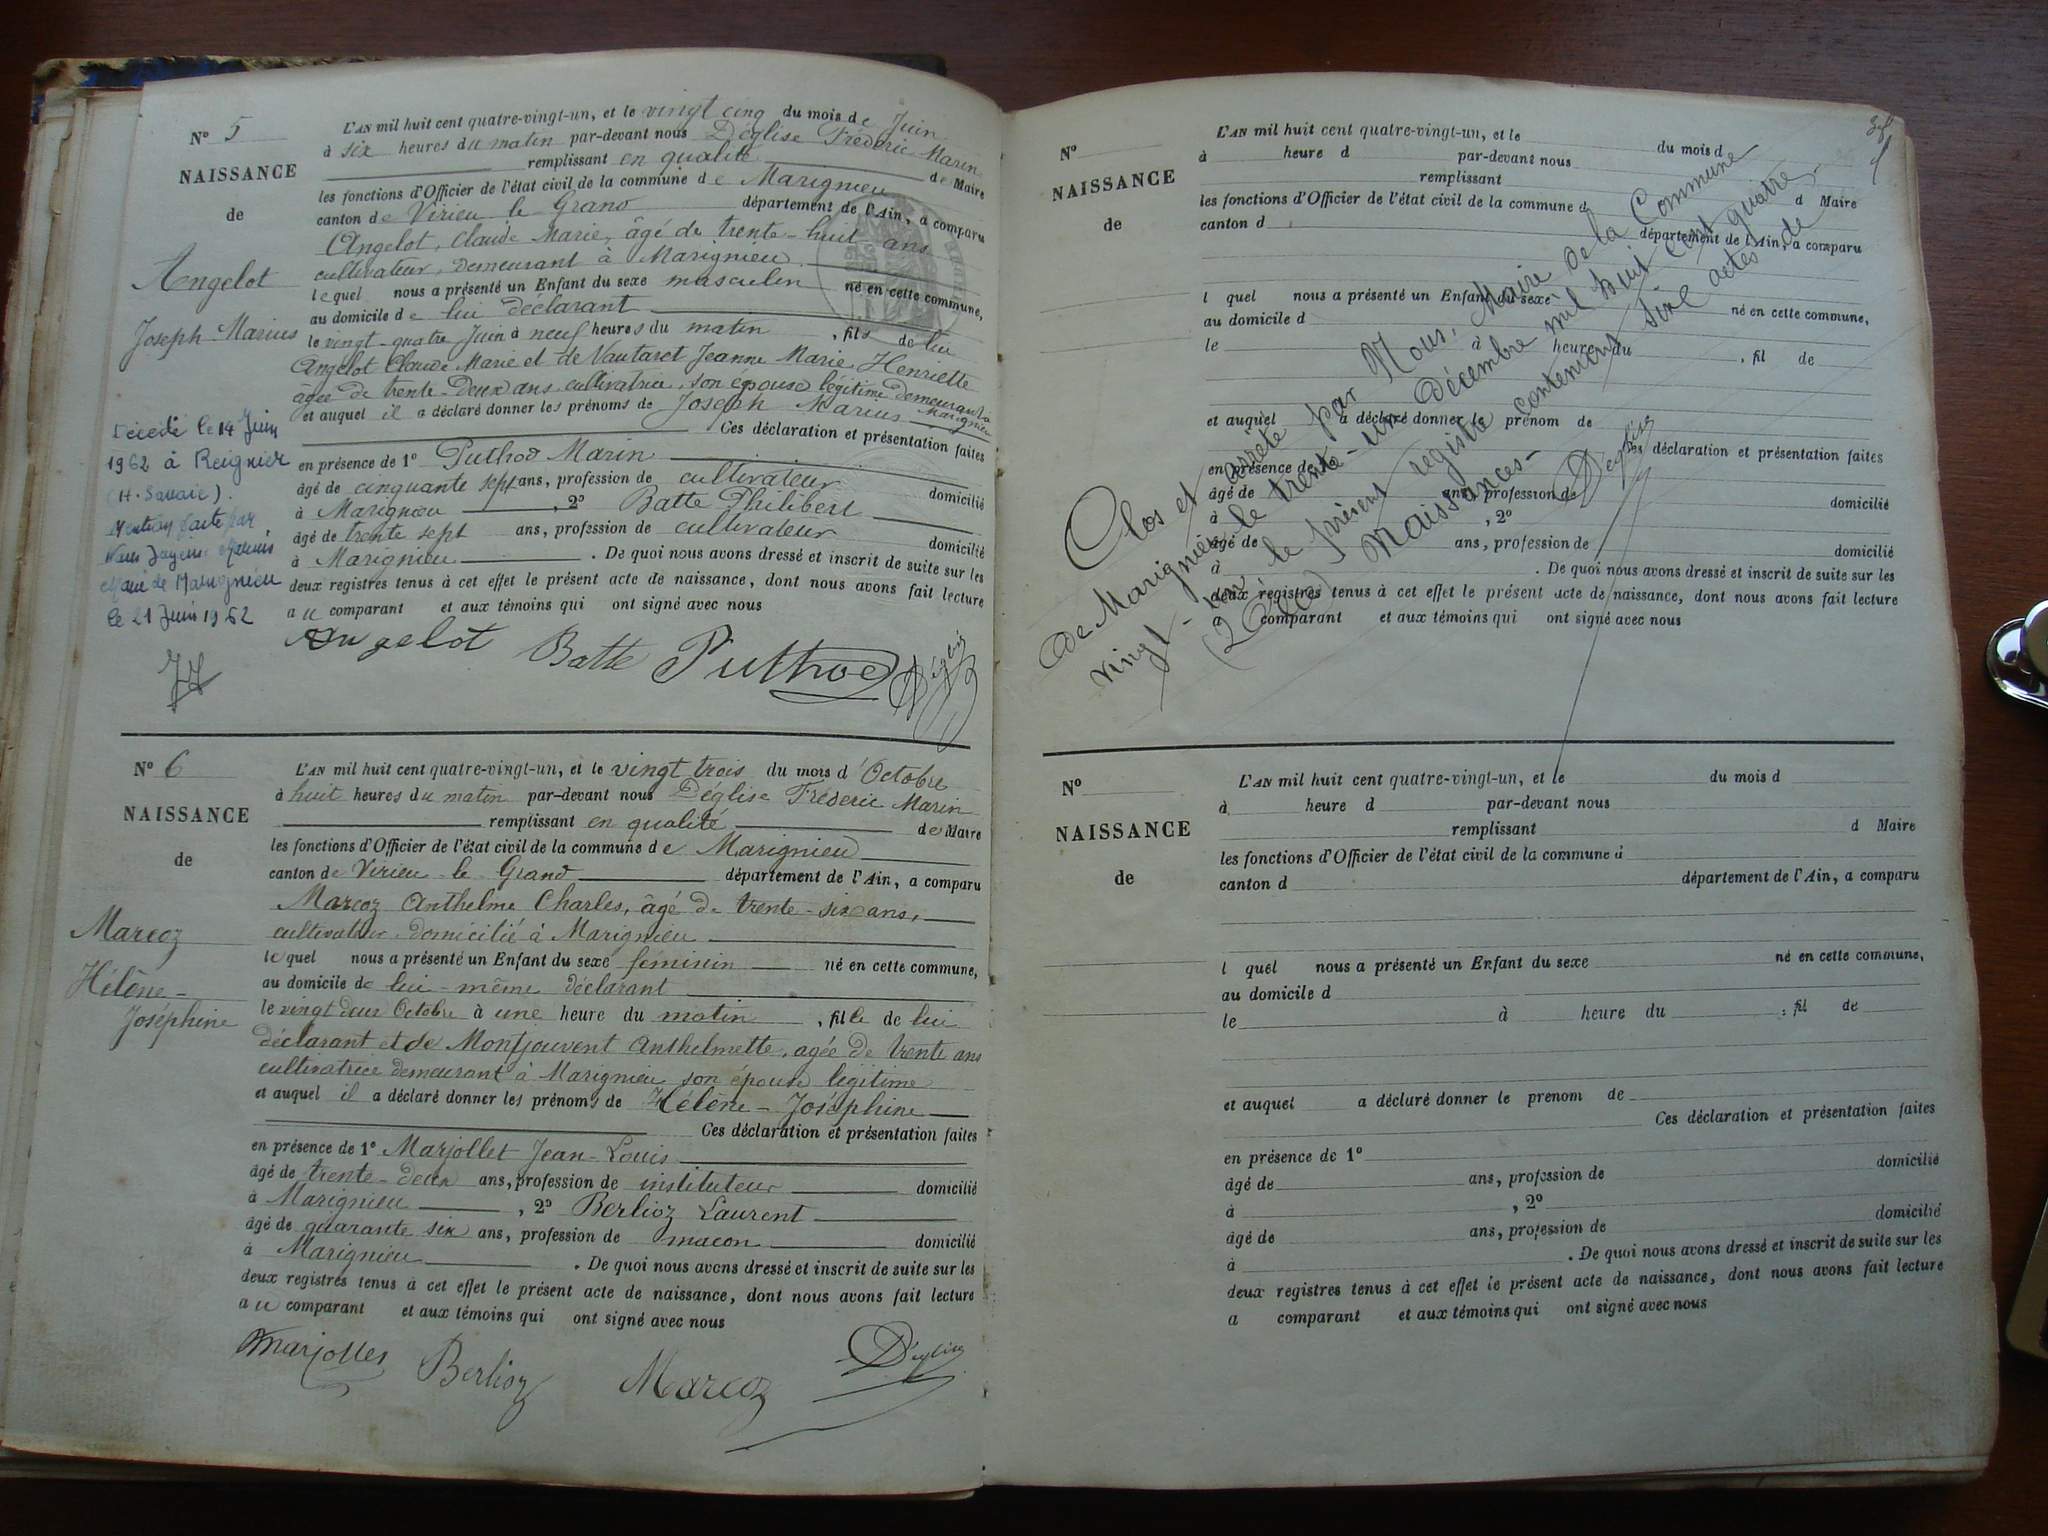 N° 5
NAISSANCE
de
Angelot
Joseph Marius
Décédé le 14 Juin
1962 à Reignier
(H. Savoie).
Mention faite par
Nous
Maire de Marignieu
le 21 Juin 1962
L'AN mil huit cent quatre-vingt-un, et le vingt cinq du mois de Juin
à six heures du matin par-devant nous Déglise Fréderic Marin
remplissant en qualité de Maire
les fonctions d'Officier de l'état civil de la commune de Marignieu
canton de Virieu le Grand département de l'Ain, a comparu
Angelot, Claude Marie, âgé de trente-huit ans
cultivateur, demeurant à Marignieu
lequel nous a présenté un Enfant du sexe masculin né en cette commune,
au domicile de lui déclarant
le vingt-quatre Juin à neuf heures du matin, fils de lui
Angelot Claude Marie et de Vautaret Jeanne Marie Henriette
âgée de trente-deux ans cultivatrice, son épouse légitime demeurant à Marignieu
et auquel il a déclaré donner les prénoms de Joseph Marius
Ces déclaration et présentation faites
en présence de 1° Puthod Marin
âgé de cinquante sept ans, profession de cultivateur domicilié
à Marignieu, 2° Batte Philibert
âgé de trente sept ans, profession de cultivateur domicilié
à Marignieu. De quoi nous avons dressé et inscrit de suite sur les
deux registres tenus à cet effet le présent acte de naissance, dont nous avons fait lecture
au comparant et aux témoins qui ont signé avec nous
Angelot Batte Puthod Déglise
N° 6
NAISSANCE
de
Marcoz
Hélène-
Joséphine
L'AN mil huit cent quatre-vingt-un, et le vingt trois du mois d'Octobre
à huit heures du matin par-devant nous Déglise Fréderic Marin
remplissant en qualité de Maire
les fonctions d'Officier de l'état civil de la commune de Marignieu
canton de Virieu le Grand département de l'Ain, a comparu
Marcoz Anthelme Charles, âgé de trente-six ans,
cultivateur domicilié à Marignieu
lequel nous a présenté un Enfant du sexe féminin né en cette commune,
au domicile de lui-même déclarant
le vingt deux Octobre à une heure du matin, fille de lui
déclarant et de Montjouvent Anthelmette, agée de trente ans
cultivatrice demeurant à Marignieu son épouse légitime
et auquel il a déclaré donner les prénoms de Hélène-Joséphine
Ces déclaration et présentation faites
en présence de 1° Marjollet Jean-Louis
âgé de trente-deux ans, profession de instituteur domicilié
à Marignieu, 2° Berlioz Laurent
âgé de quarante six ans, profession de macon domicilié
à Marignieu. De quoi nous avons dressé et inscrit de suite sur les
deux registres tenus à cet effet le présent acte de naissance, dont nous avons fait lecture
au comparant et aux témoins qui ont signé avec nous
Marjollet Berlioz Marcoz Déglise
N°
NAISSANCE
de
L'AN mil huit cent quatre-vingt-un, et le du mois d
à heure d par-devant nous
remplissant d Maire
les fonctions d'Officier de l'état civil de la commune d
canton d département de l'Ain, a comparu
l quel nous a présenté un Enfant du sexe né en cette commune,
au domicile d
le à heure du, fil de
et auquel a déclaré donner le prénom de
Ces déclaration et présentation faites
en présence de 1°
âgé de ans, profession de domicilié
à, 2°
âgé de ans, profession de domicilié
à. De quoi nous avons dressé et inscrit de suite sur les
deux registres tenus à cet effet le présent acte de naissance, dont nous avons fait lecture
a comparant et aux témoins qui ont signé avec nous
Clos et arrêté par Nous, Maire de la Commune
de Marignieu le trente-un Décembre mil huit cent quatre-
vingt-un le présent registre contenant six actes de
Naissances-
Déglise
N°
NAISSANCE
de
L'AN mil huit cent quatre-vingt-un, et le du mois d
à heure d par-devant nous
remplissant d Maire
les fonctions d'Officier de l'état civil de la commune d
canton d département de l'Ain, a comparu
l quel nous a présenté un Enfant du sexe né en cette commune,
au domicile d
le à heure du, fil de
et auquel a déclaré donner le prenom de
Ces déclaration et présentation faites
en présence de 1°
âgé de ans, profession de domicilié
à, 2°
âgé de ans, profession de domicilié
à. De quoi nous avons dressé et inscrit de suite sur les
deux registres tenus à cet effet le présent acte de naissance, dont nous avons fait lecture
a comparant et aux témoins qui ont signé avec nous